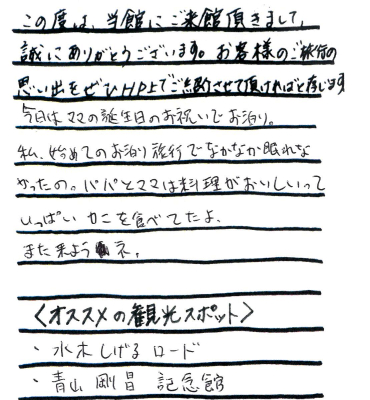 この度は、当館にご来館頂きまして、
誠にありがとうございます。お客様のご旅行の
思い出をぜひHP上でご紹介させて頂ければと存じます
今日はママの誕生日のお祝いでお泊り。
私、始めてのお泊り旅行でなかなか眠れな
かったの。パパとママは料理がおいしいって
いっぱいカニを食べてたよ。
また来ようネ。
〈オススメの観光スポット〉
・水木しげるロード
・青山剛昌 記念館